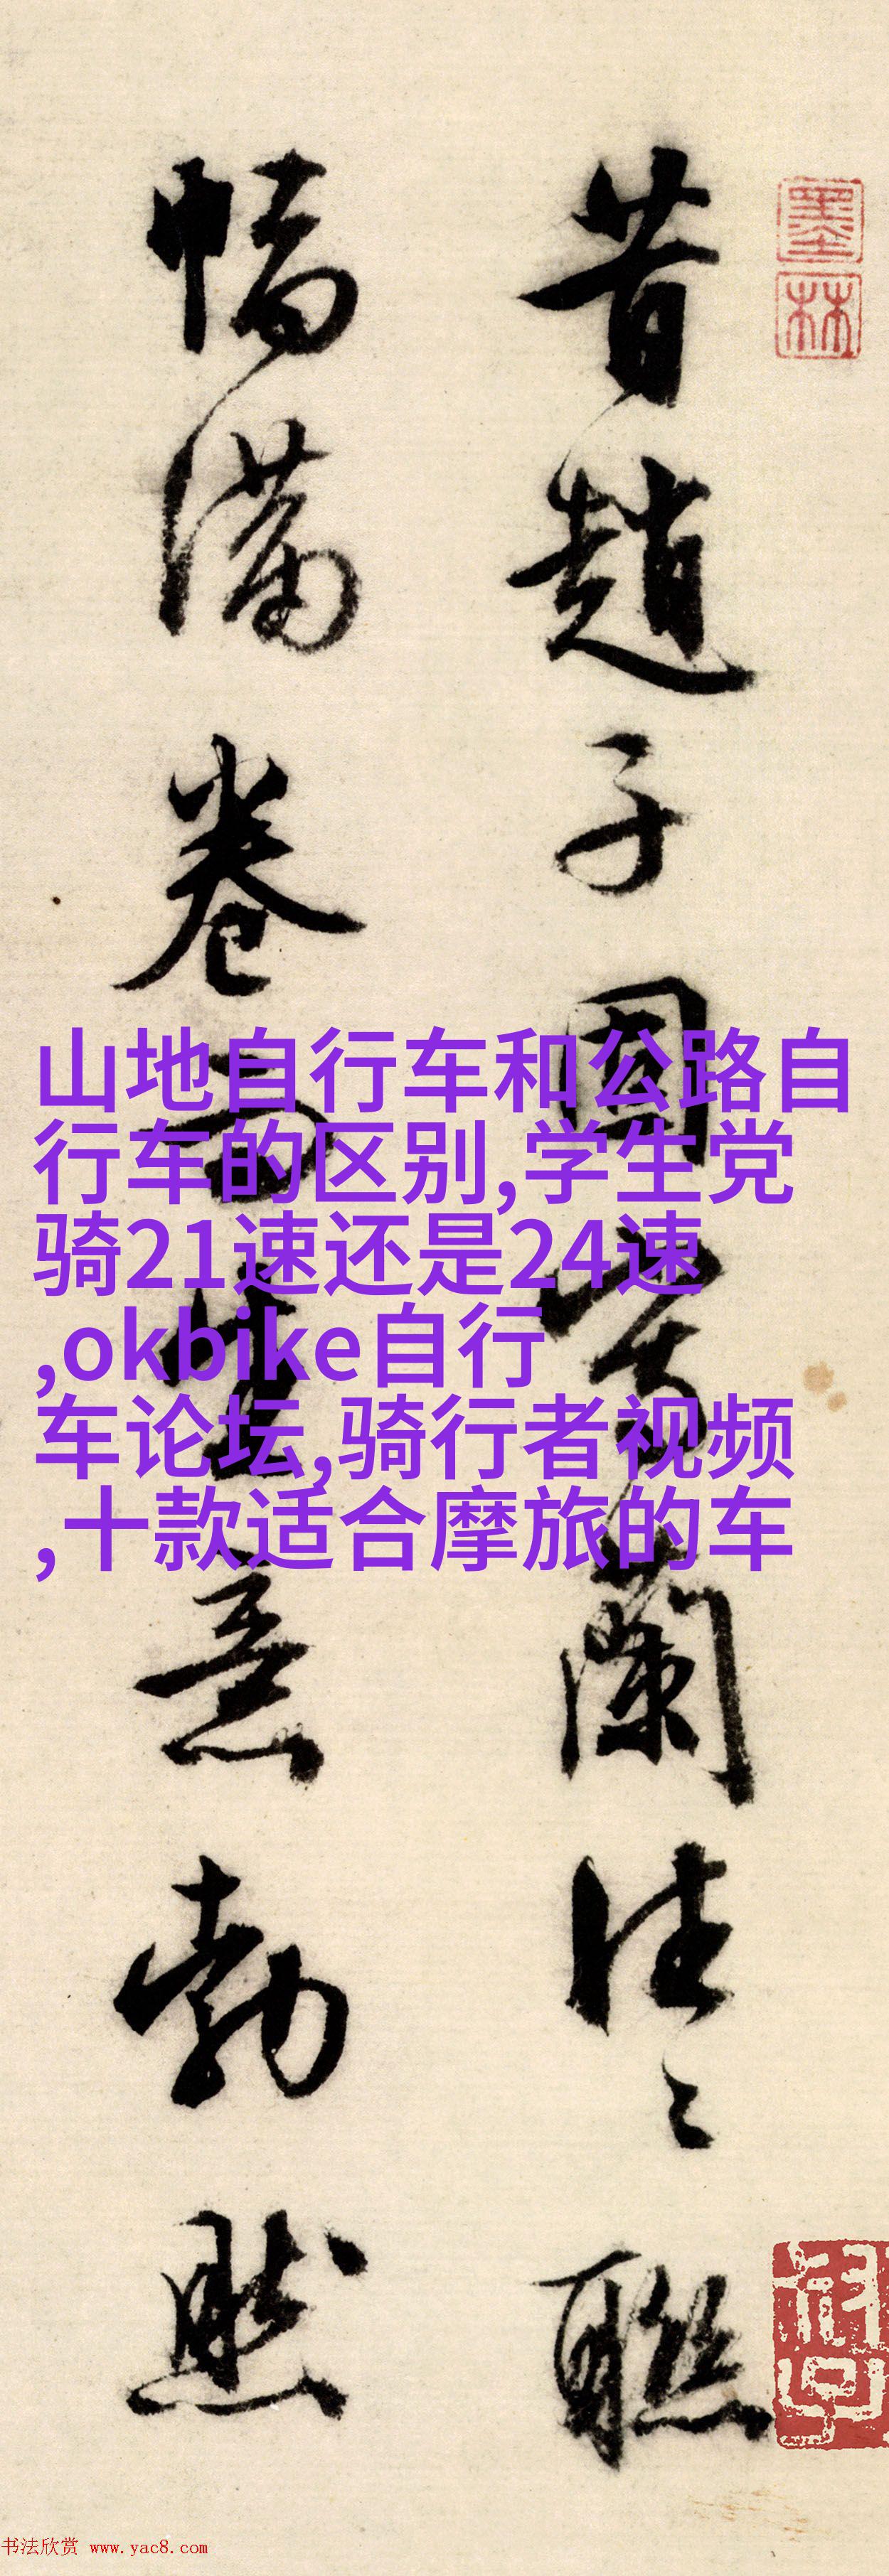 昔趙子固寫蘭往〻聯
幅滿卷而生意勃然
墨林
山地自行车和公路自
行车的区别,学生党
骑21速还是24速
,okbike自行
车论坛,骑行者视频
,十款适合摩旅的车
书法欣赏 www.yac8.com